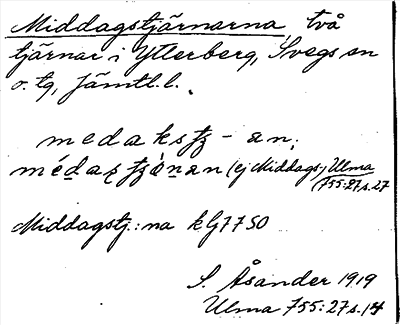 Middagstjärnarna, två
tjärnar i Ytterberg, Svegs sn
o. tg, Jämtl.l.
medakstz-an;
(ej Middags-) Ulma
(755:27 s. 27
Middagstj.:na kfj7750
S. Åsander 1919
Ulma 755:27 s. 14